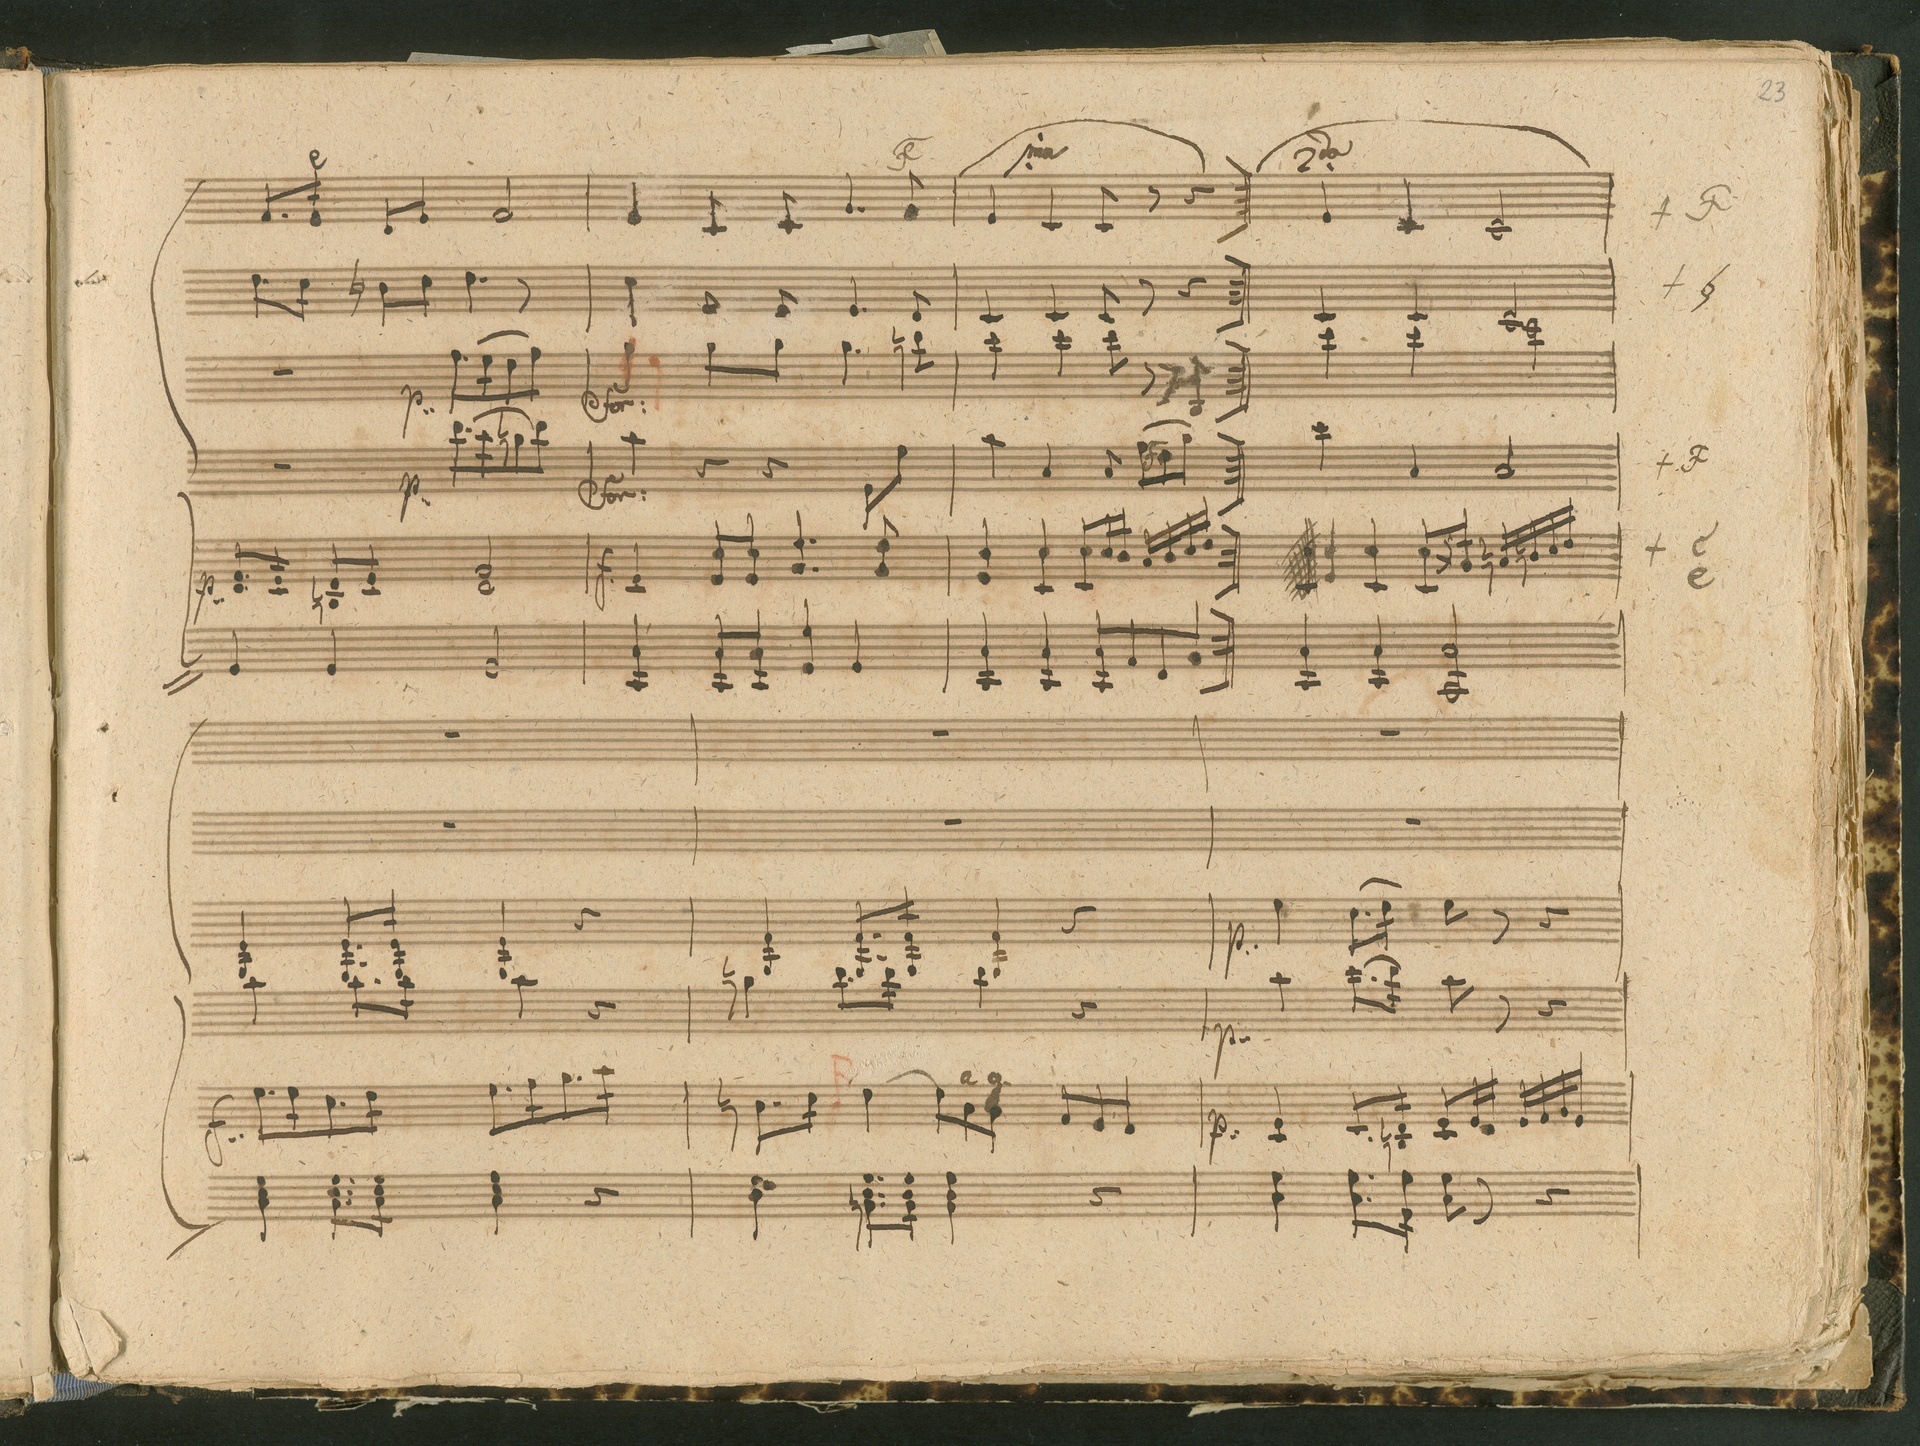 23
e
F
ma
2da
+ F
+ ♮
p.:
for:
p.:
for:
+ F
p.:
f.
+ c
e
p.:
p.:
F
a g
f.:
p.: